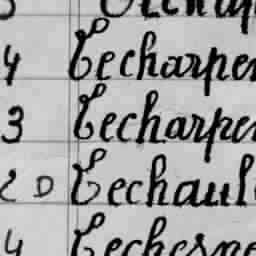 4 Lecharpen
3 Lecharpen
2 D Lechaul
4 Lechesne